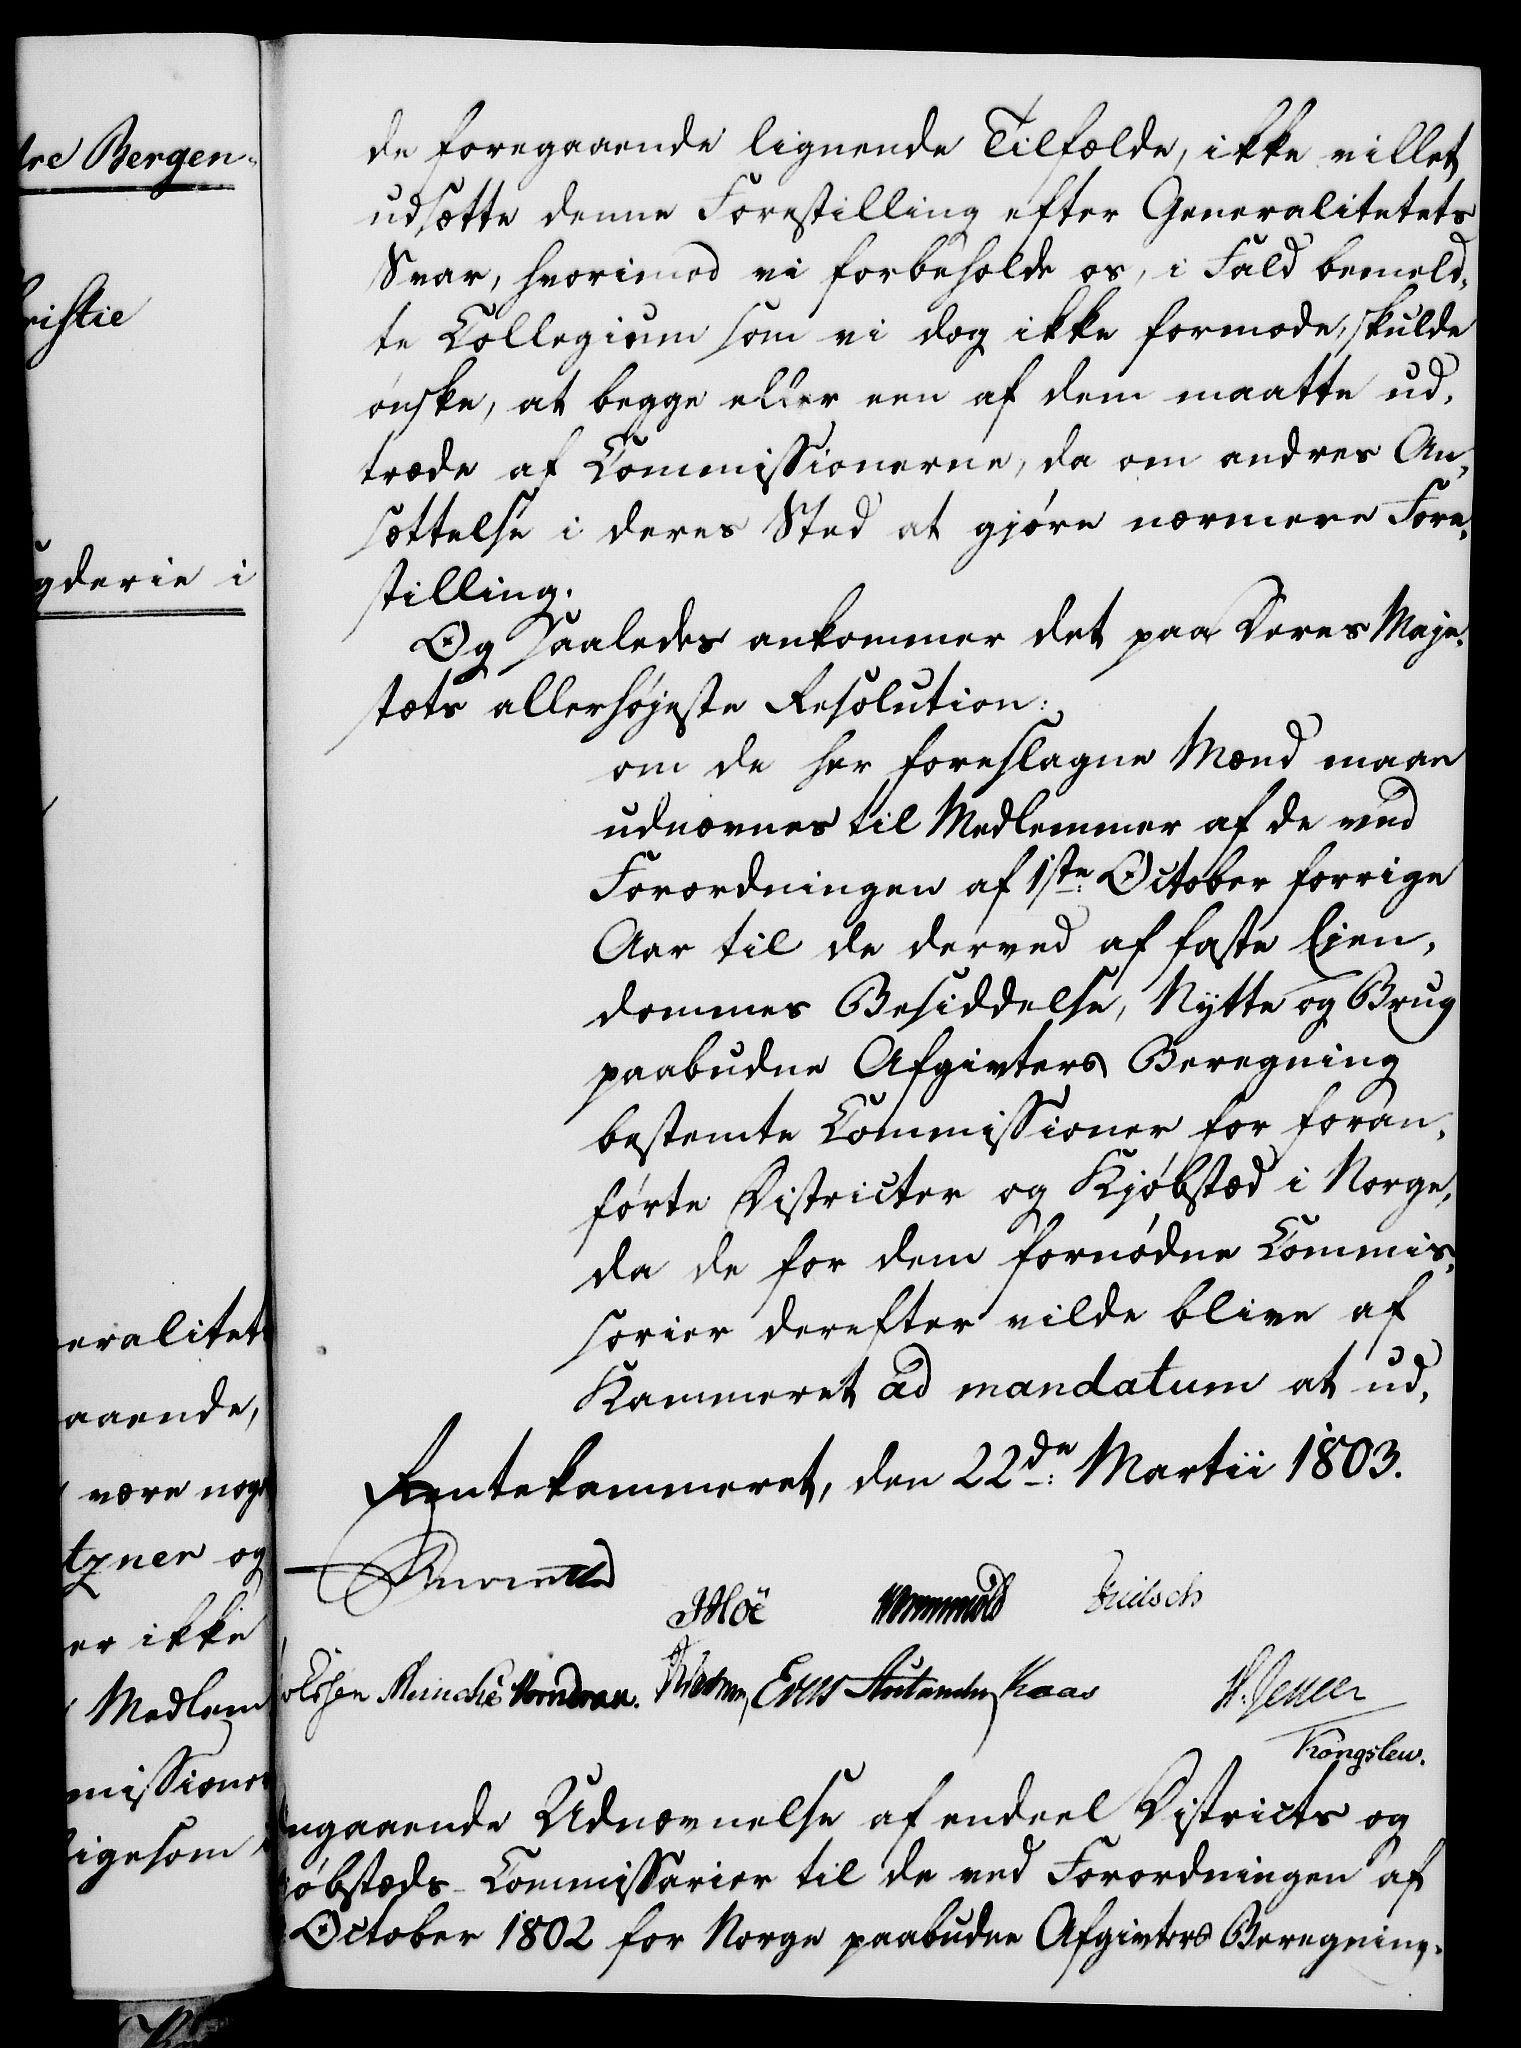 dre Bergen-
hristie
gderie i
eralitet
aaende,
være noge
tzner og
er ikke
Medlem
missioner
ligesom
de foregaaende lignende Tilfælde, ikke villet
udsætte denne Forestilling efter Generalitetets
Svar, hvorimod vi forbeholde os, i Fald bemeld-
te Collegium som vi dog ikke formode, skulde
ønske, at begge eller een af dem maatte ud-
træde af Commissionerne, da om andres An-
sættelse i deres Sted at gjøre nærmere Fore-
stilling.
Og saaledes ankommer det paa Deres Maje-
stæts allerhøjeste Resolution:
om de her foreslagne Mænd maae
udnævnes til Medlemmer af de ved
Forordningen af 1ste October forrige
Aar til de derved af faste Ejen-
dommes Besiddelse, Nytte og Brug
paabudne Afgivters Beregning
bestemte Commissioner for foran-
førte Districter og Kjøbstæd i Norge,
da de for dem fornødne Commis-
sorier derefter vilde blive af
Kammeret ad mandatum at ud-
Rentekammeret, den 22de Martii 1803.
Reventlow
JMöe Wormskiold Fridsch
olssen Meinche Vorndran. Evers Kaas
Kongslew.
ngaaende Udnævnelse af endeel Districts og
øbstæds-Commissarier til de ved Forordningen af
October 1802 for Norge paabudne Afgivters Beregning.